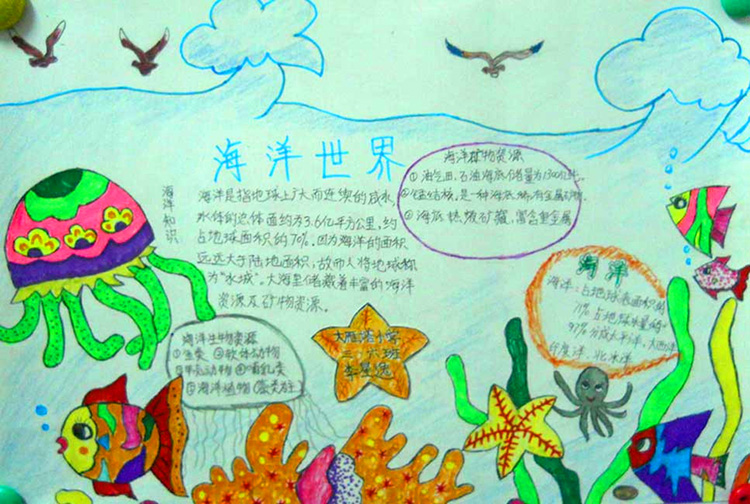 海洋世界
海洋知识
海洋是指地球上广大而连续的咸水
水体的总体面约为3.6亿平方公里，约
占地球面积的70%。因为海洋的面积
远远大于陆地面积，故而人将地球称
为"水城"。大海里储藏着丰富的海洋
资源及矿物资源。
海洋矿物资源
①油气田、石油海底储量为1300亿
②锰结核，是一种海底稀有金属矿
③海底热液矿藏，富含重金属
海洋
海洋：占地球表面积的
71%占地球水量的
97%分成太平洋、大西洋
印度洋、北冰洋
海洋生物资源
①鱼类 ②软体动物
③甲壳动物 ④哺乳类
⑤海洋植物（藻类为主）
三、六班